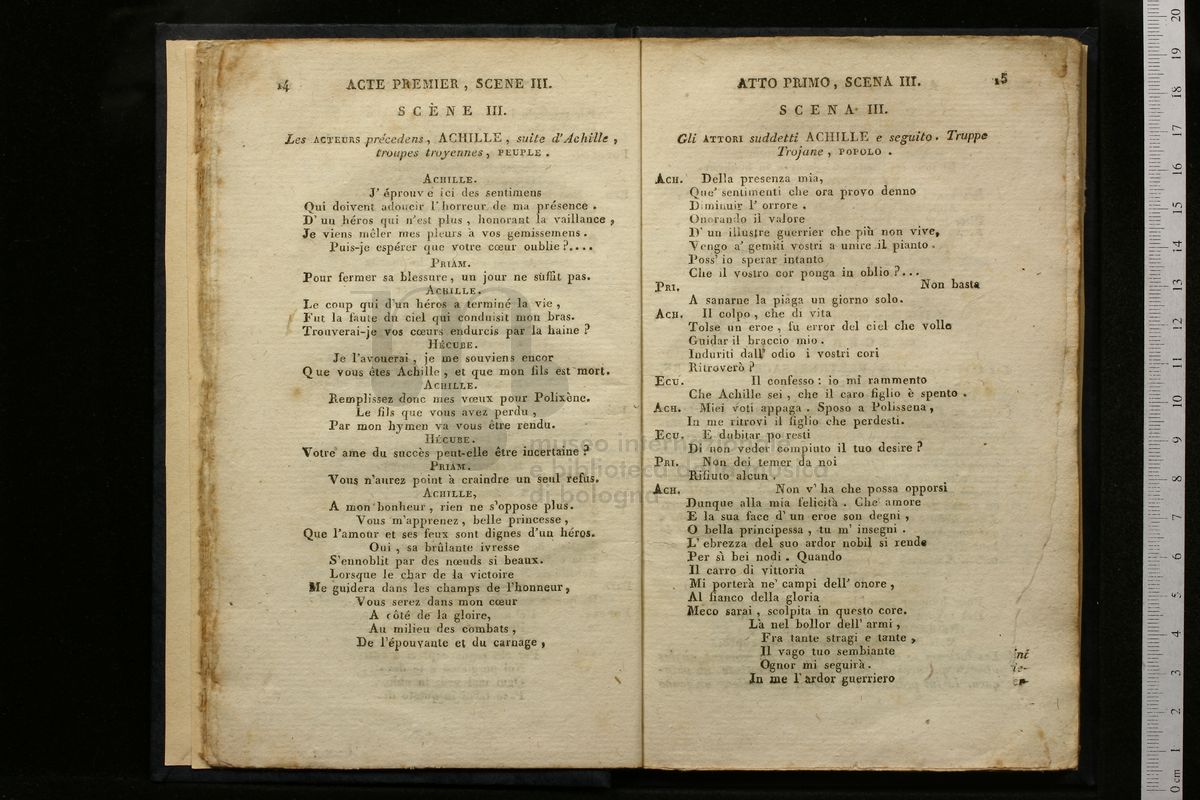 14 ACTE PREMIER, SCENE III.
SCÈNE III.
Les ACTEURS précedens, ACHILLE, suite d'Achille,
troupes troyennes, PEUPLE.
ACHILLE.
J' éprouve ici des sentimens
Qui doivent adoucir l'horreur de ma présence.
D'un héros qui n'est plus, honorant la vaillance,
Je viens mêler mes pleurs à vos gemissemens.
Puis-je espérer que votre cœur oublie?....
PRIAM.
Pour fermer sa blessure, un jour ne suffit pas.
ACHILLE.
Le coup qui d'un héros a terminé la vie,
Fut la faute du ciel qui conduisit mon bras.
Trouverai-je vos cœurs endurcis par la haine?
HÉCUBE.
Je l'avouerai, je me souviens encor
Que vous êtes Achille, et que mon fils est mort.
ACHILLE.
Remplissez donc mes vœux pour Polixène.
Le fils que vous avez perdu,
Par mon hymen va vous être rendu.
HÉCUBE.
Votre ame du succès peut-elle être incertaine?
PRIAM.
Vous n'aurez point à craindre un seul refus.
ACHILLE,
A mon bonheur, rien ne s'oppose plus.
Vous m'apprenez, belle princesse,
Que l'amour et ses feux sont dignes d'un héros.
Oui, sa brûlante ivresse
S'ennoblit par des nœuds si beaux.
Lorsque le char de la victoire
Me guidera dans les champs de l'honneur,
Vous serez dans mon cœur
A côté de la gloire,
Au milieu des combats,
De l'épouvante et du carnage,
ATTO PRIMO, SCENA III. 15
SCENA III.
Gli ATTORI suddetti ACHILLE e seguito. Truppe
Trojane, POPOLO.
ACH. Della presenza mia,
Que' sentimenti che ora provo denno
Diminuir l' orrore.
Onorando il valore
D' un illustre guerrier che più non vive,
Vengo a' gemiti vostri a unire il pianto.
Poss' io sperar intanto
Che il vostro cor ponga in oblio?...
PRI. Non basta
A sanarne la piaga un giorno solo.
ACH. Il colpo, che di vita
Tolse un eroe, fu error del ciel che volle
Guidar il braccio mio.
Induriti dall' odio i vostri cori
Ritroverò?
ECU. Il confesso: io mi rammento
Che Achille sei, che il caro figlio è spento.
ACH. Miei voti appaga. Sposo a Polissena,
In me ritrovi il figlio che perdesti.
ECU. E dubitar potesti
Di non veder compiuto il tuo desire?
PRI. Non dei temer da noi
Rifiuto alcun.
ACH. Non v' ha che possa opporsi
Dunque alla mia felicità. Che amore
E la sua face d' un eroe son degni,
O bella principessa, tu m' insegni.
L' ebrezza del suo ardor nobil si rende
Per sì bei nodi. Quando
Il carro di vittoria
Mi porterà ne' campi dell' onore,
Al fianco della gloria
Meco sarai, scolpita in questo core.
Là nel bollor dell' armi,
Fra tante stragi e tante,
Il vago tuo sembiante
Ognor mi seguirà.
In me l' ardor guerriero
museo internazionale
e biblioteca della musica
di bologna